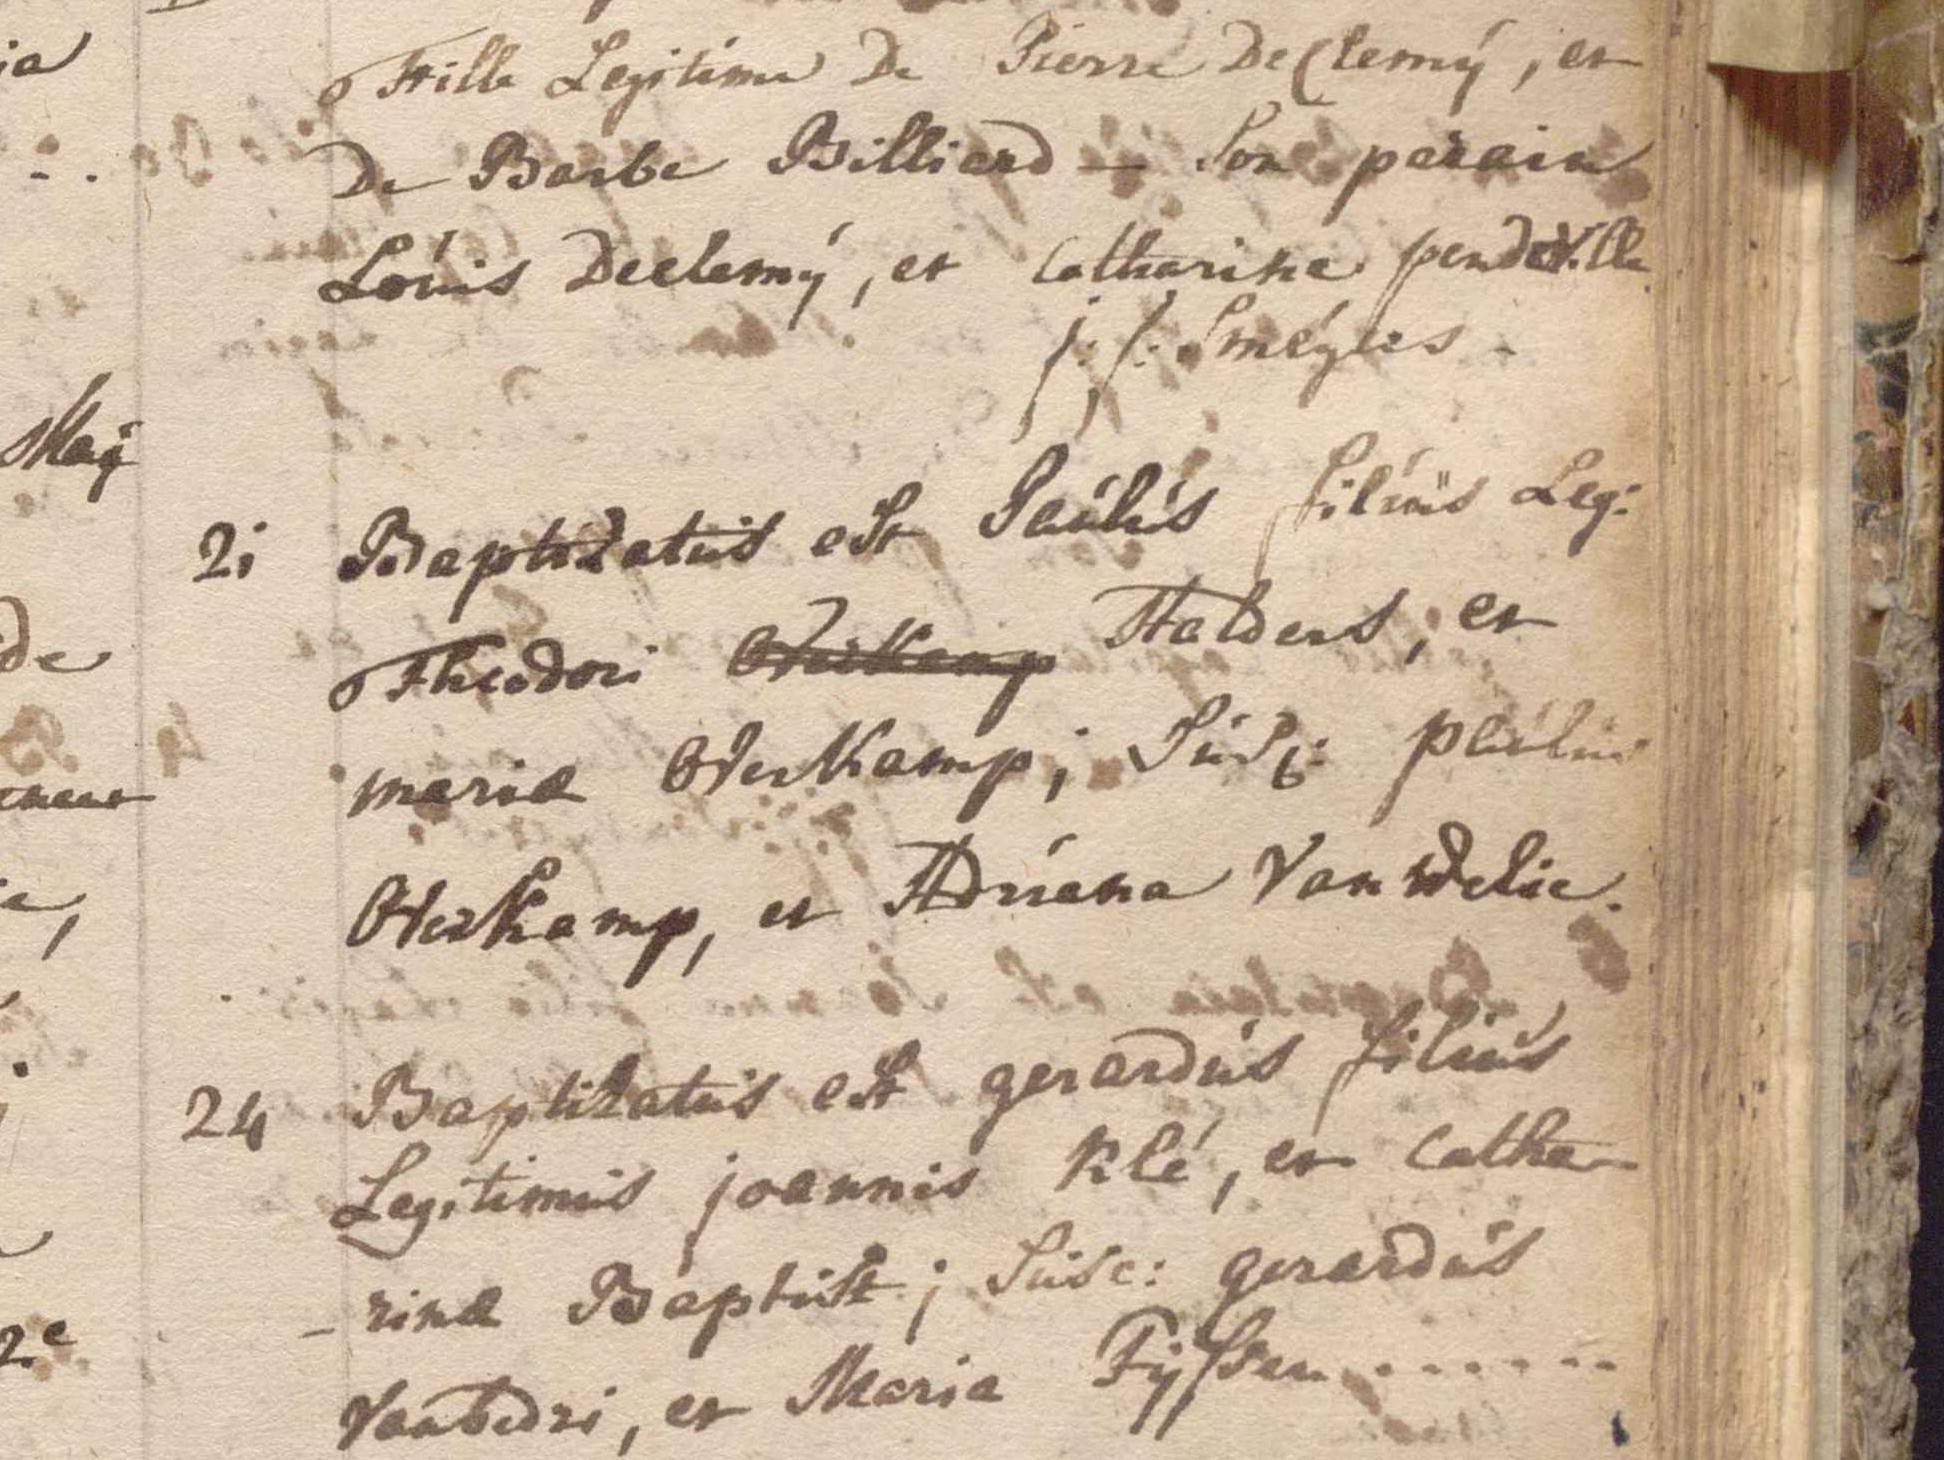 Fille Legitime De Pierre Declemÿ, et
De Barbe Billiard — Son parain
Louis Declemÿ, et Catharine pendeville
j: f: Smeÿers -
2i Baptizatus est Paulus filius Leg:
Theodori Overkamp Halders, et
mariæ Overkamp; Susc: paulus
Overkamp, et Adriana Van Welie.
24 Baptizatus est gerardus filius
Legitimus joannis Klé, et Catha-
- rinæ Baptist; Susc: gerardus
et Maria Tijssen ........